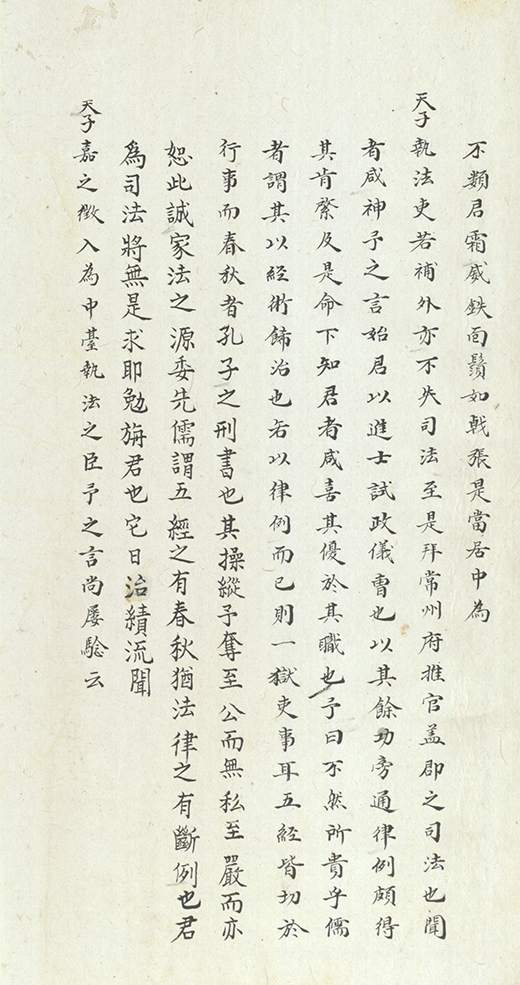 不類君霜威鉄面鬚如戟張是當居中為
天子執法吏若補外亦不失司法至是拜常州府推官盖郡之司法也聞
者咸神予之言始君以進士試政儀曹也以其餘功旁通律例頗得
其肯綮及是命下知君者咸喜其優於其職也予曰不然所貴乎儒
者謂其以經術飾治也若以律例而已則一獄吏事耳五經皆切於
行事而春秋者孔子之刑書也其操縱予奪至公而無私至嚴而亦
恕此誠家法之源委先儒謂五經之有春秋猶法律之有斷例也君
為司法將無是求耶勉旃君也它日治績流聞
天子嘉之徴入為中臺執法之臣予之言尚屡驗云